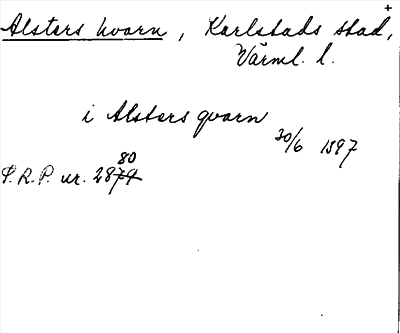 +
Alsters kvarn, Karlstads stad,
Värml. l.
i Alsters qvarn
30/6 1597
80
S.R.P. nr. 2879